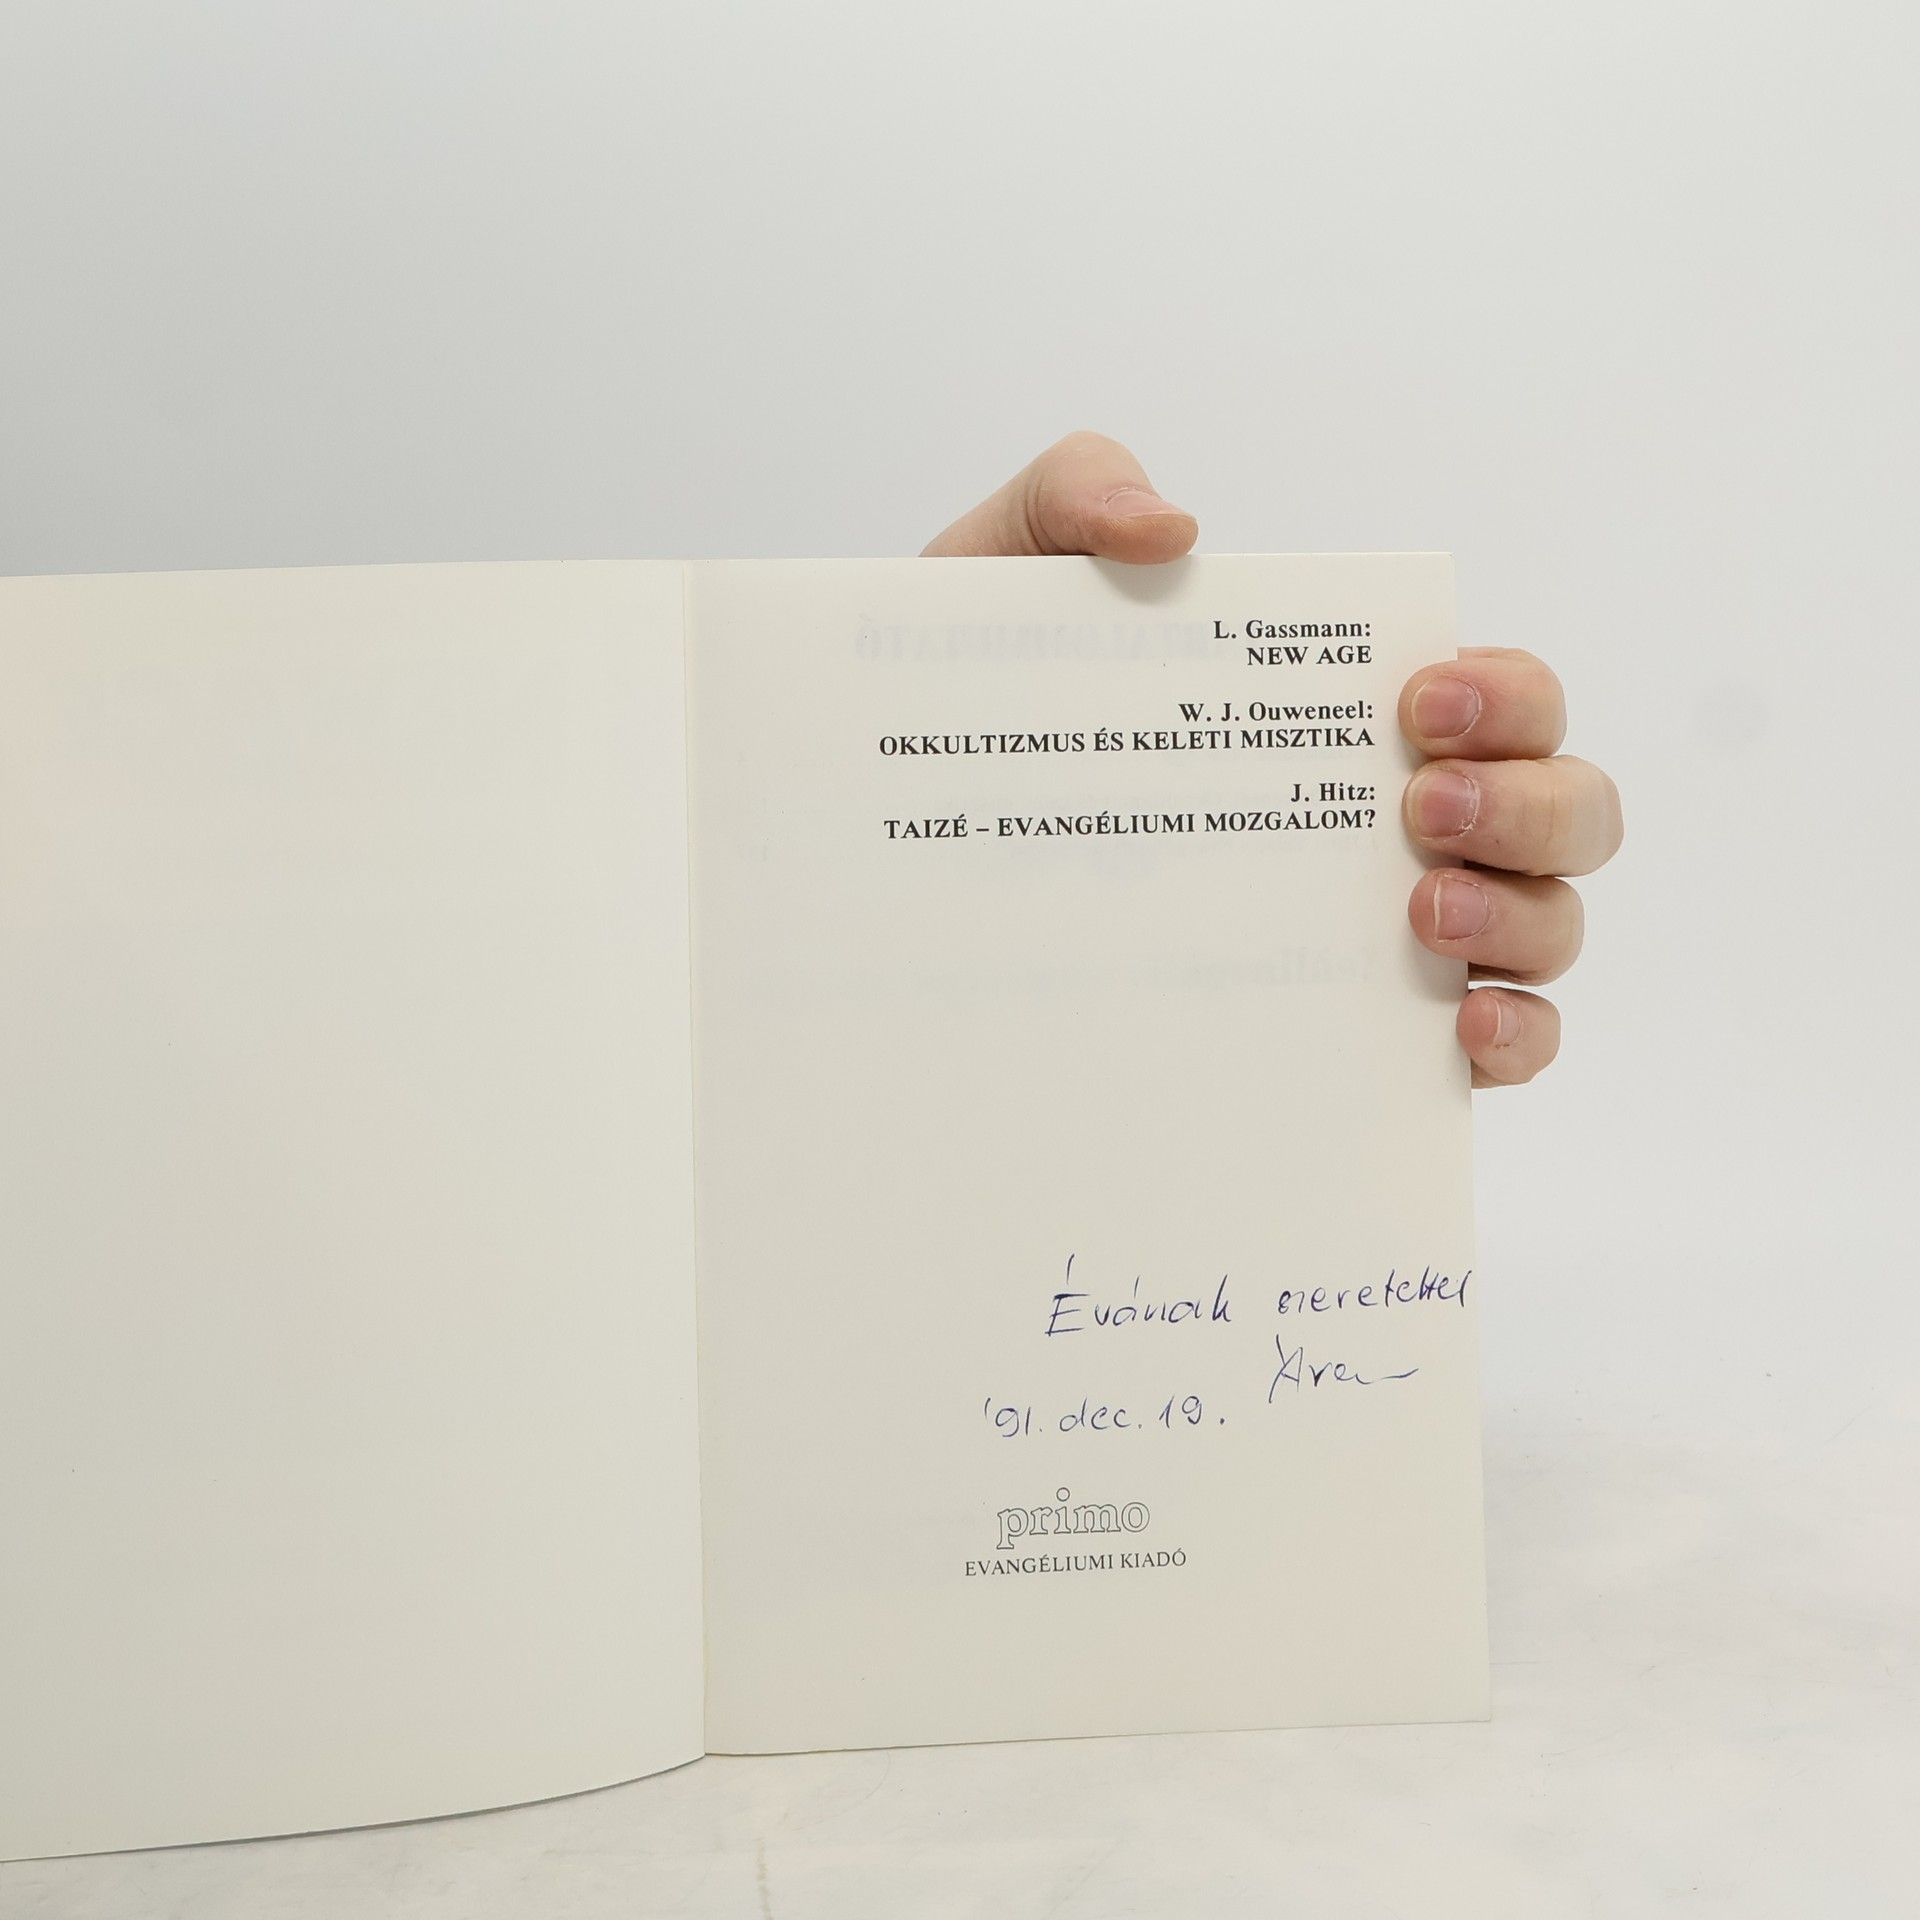 L. Gassmann:
NEW AGE
W. J. Ouweneel:
OKKULTIZMUS ÉS KELETI MISZTIKA
J. Hitz:
TAIZÉ – EVANGÉLIUMI MOZGALOM?
Évának szeretettel
'91. dec. 19.
primo
EVANGÉLIUMI KIADÓ